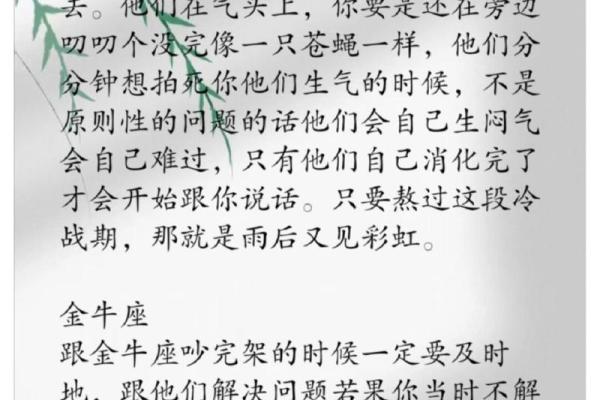 去。他们在气头上，你要是还在旁边
叨叨个没完像一只苍蝇一样，他们分
分钟想拍死你他们生气的时候，不是
原则性的问题的话他们会自己生闷气
会自己难过，只有他们自己消化完了
才会开始跟你说话。只要熬过这段冷
战期，那就是雨后又见彩虹。
金牛座
跟金牛座吵完架的时候一定要及时
地，跟他们解决问题若果你当时不解